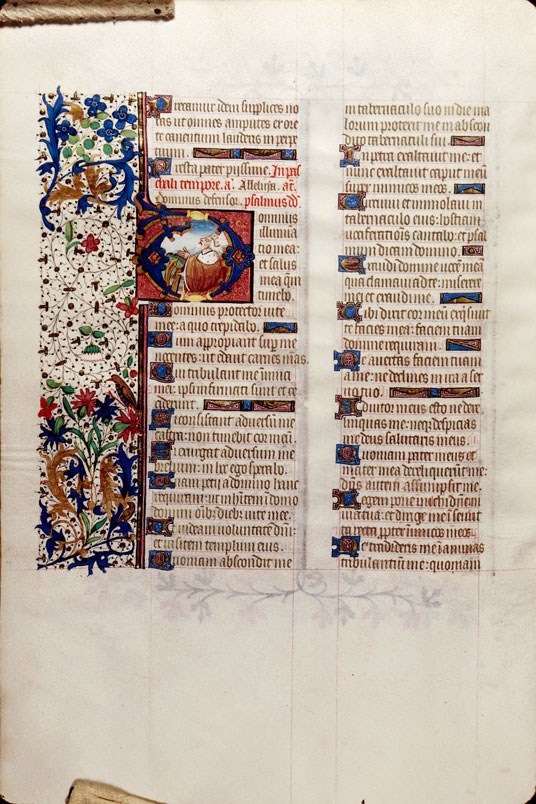 recamur idem supplices no
ctis ut omnes amputes et ore
te canentium laudens in perpe
tuum.
resta pater pijssime. In pas
chali tempore. a. Alleluja. an.
ominus defensor. psalmus dd
ominus
illumina
tio mea:
et salus
mea quem
timebo.
ominus protector vite
mee: a quo trepidabo.
um appropiant sup me
nocentes: ut edant carnes meas.
ui tribulant me inimici
mei: ipsi infirmati sunt et ce
ciderunt.
i consistant adversum me
castra: non timebit cor meum.
i exurgat adversum me
prelium: in hoc ego sperabo.
nam petij a domino hanc
requiram: ut inhitem in domo
domini omib3 dieb3 vite mee.
t videam voluntatem dni:
et visitem templum eius.
uoniam abscondit me
in tabernaculo suo: in die ma
lorum protexit me in abscon
dito tabernaculi sui.
n petra exaltavit me: et
nunc exaltavit caput meum
super inimicos meos.
ircuivi et immolavi in
tabernaculo eius: hostiam
vociferationis cantabo: et psal
mum dicam domino.
xaudi domine vocem meam
qua clamavi ad te: miserere
mei et exaudi me.
ibi dixit cor meum exquisivit
te facies mea: faciem tuam
domine requiram.
e avertas faciem tuam
a me: ne declines in ira a ser
vo tuo.
diutor meus esto ne dere
linquas me: neq3 despicias
me deus salutaris meus.
uoniam pater meus et
mater mea dereliquerunt me:
dns autem assumpsit me.
egem pone michi dne in
via tua: et dirige me in semita
recta, propter inimicos meos.
e tradideris me in animas
tribulantium me: quoniam